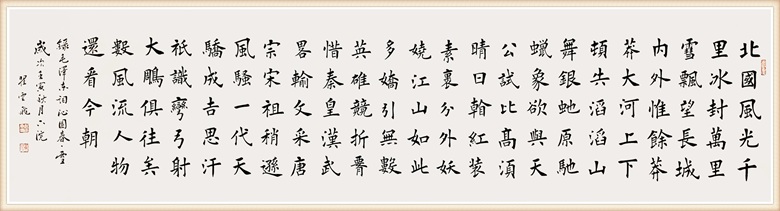 北國風光千
里冰封萬里
雪飄望長城
內外惟餘莽
莽大河上下
頓失滔滔山
舞銀蛇原馳
蠟象欲與天
公試比高須
晴日看紅裝
素裹分外妖
嬈江山如此
多嬌引無數
英雄競折腰
惜秦皇漢武
畧輸文采唐
宗宋祖稍遜
風騷一代天
驕成吉思汗
祇識彎弓射
大鵰俱往矣
數風流人物
還看今朝
錄毛澤東詞沁園春雪
歲次壬寅秋月